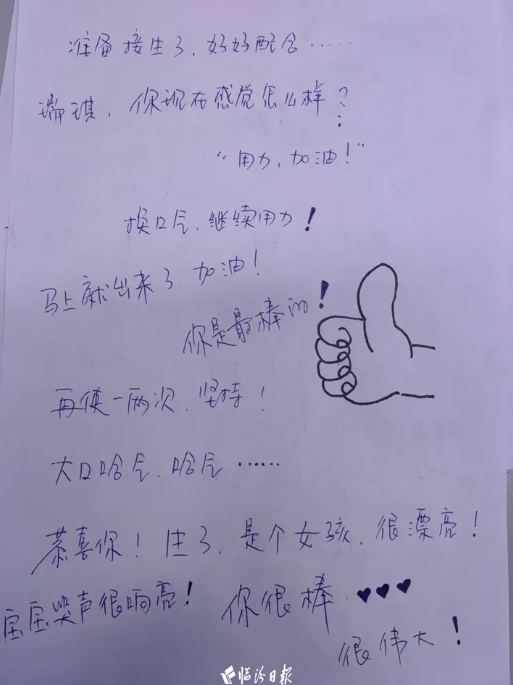 准备接生了，好好配合……
瑞琪，你现在感觉怎么样？
“用力，加油！”
换口气，继续用力！
马上就出来了，加油！
你是最棒的！
再使一两次，坚持！
大口哈气，哈气……
恭喜你！生了，是个女孩，很漂亮！
宝宝哭声很响亮！你很棒♥♥♥
很伟大！
临汾日报